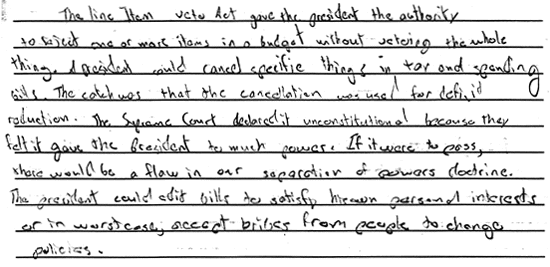 The line Item veto Act gave the president the authority
to reject one or more items in a budget without vetoing the whole
thing. A president could cancel specific things in tax and spending
bills. The catch was that the cancellation was used for deficit
reduction. The Supreme Court declared it unconstitutional because they
felt it gave the President to much power. If it were to pass,
there would be a flaw in our separation of powers doctrine.
The president could edit bills to satisfy his own personal interests
or in worst case, accept bribes from people to change
policies.